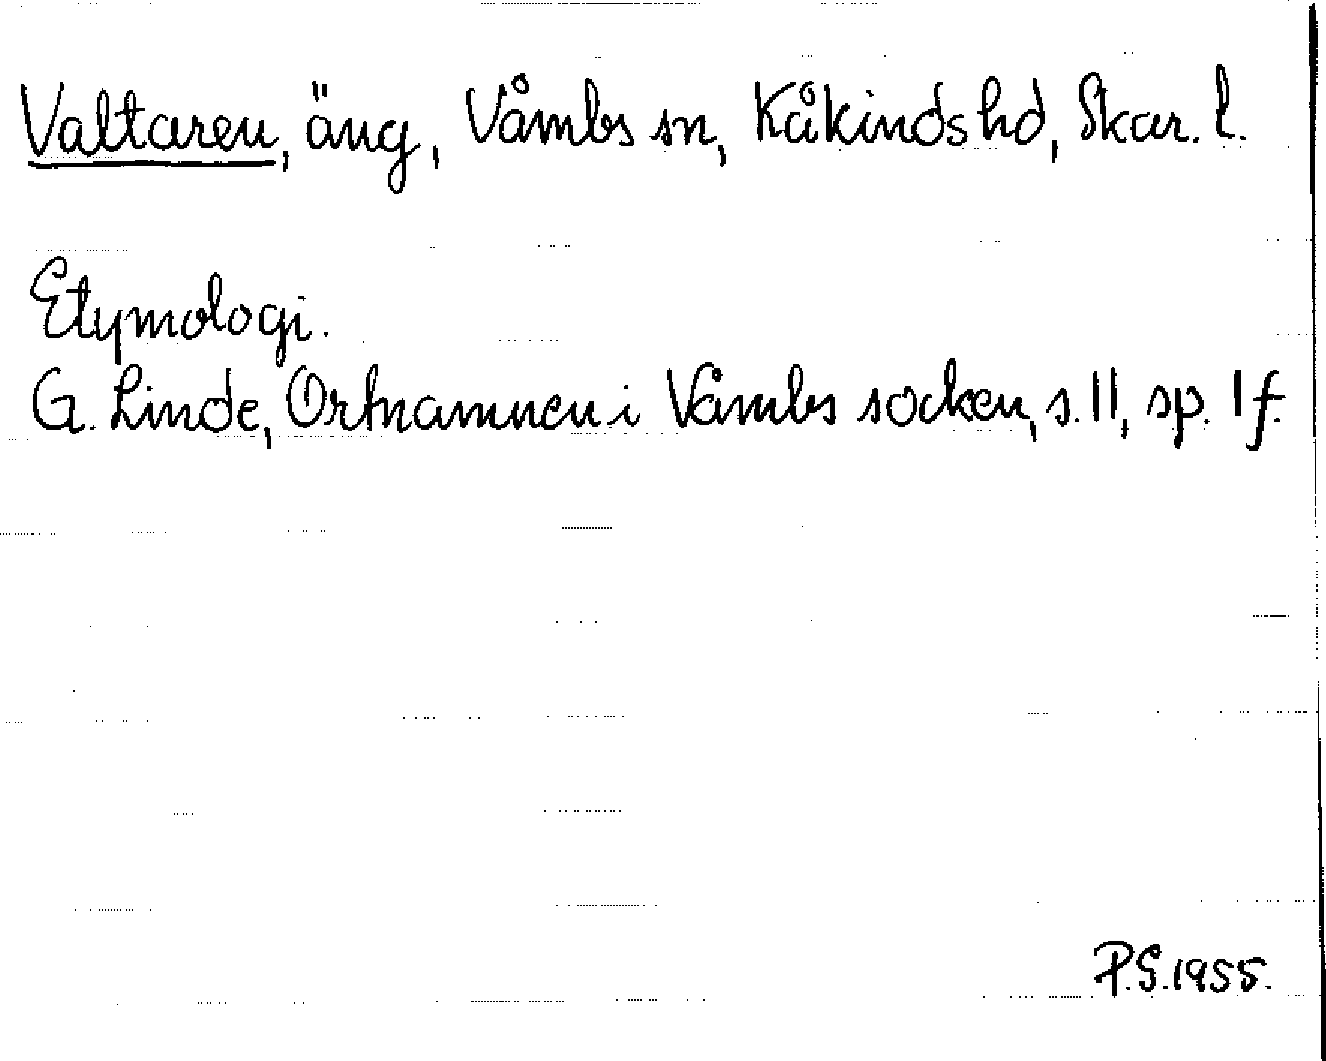 Valtaren, äng, Våmbs sn, Kåkinds hd, Skar. l.
Etymologi.
G. Linde, Ortnamnen i Våmbs socken, s. 11, sp. 1 f.
P.S. 1955.